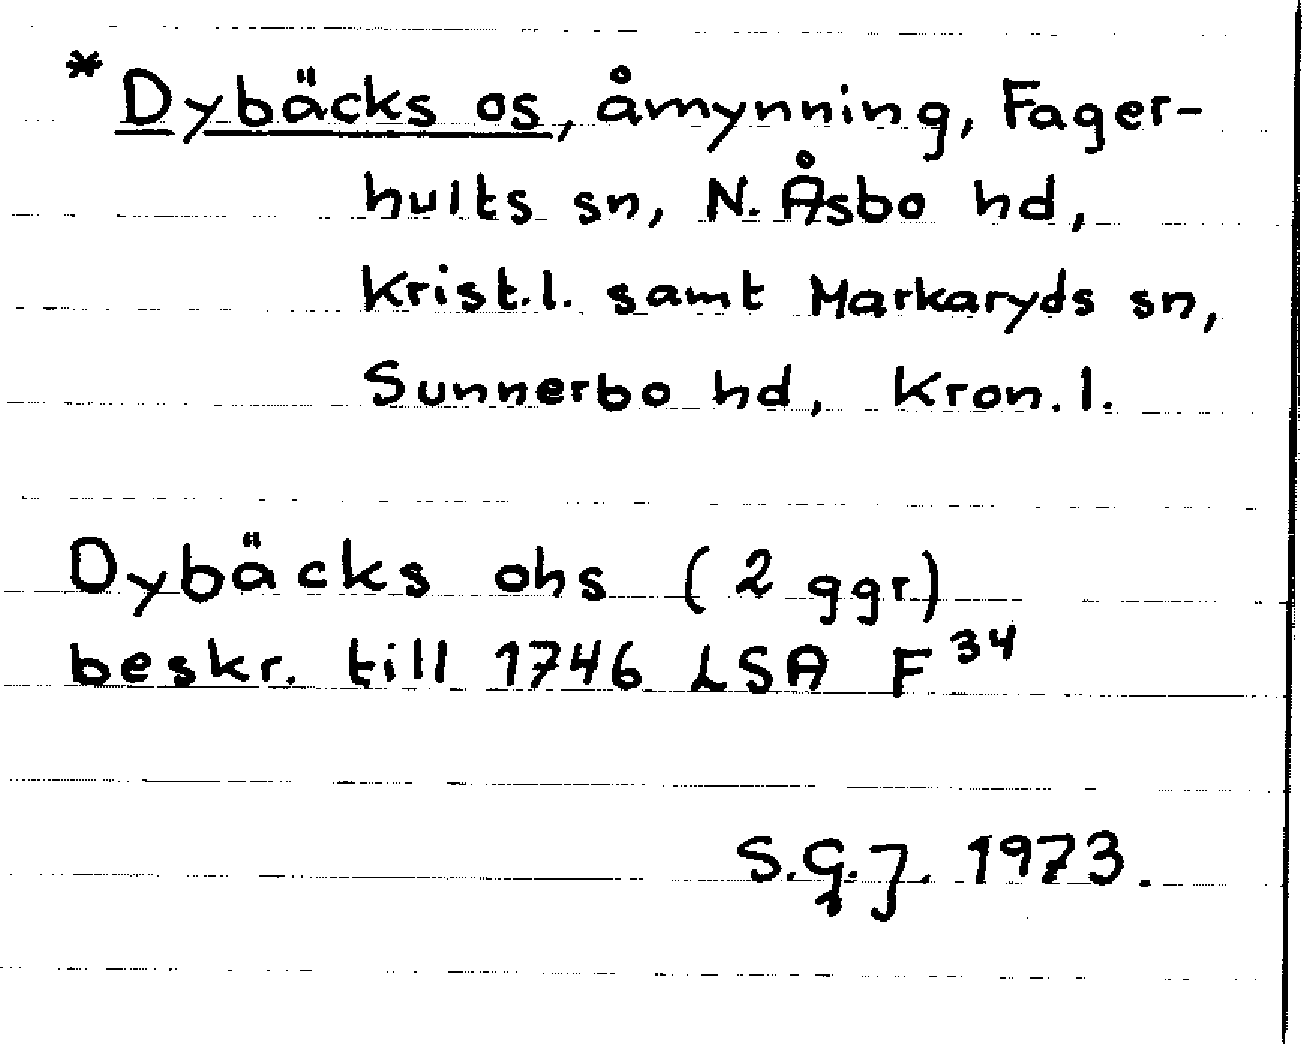 * Dybäcks os, åmynning, Fager-
hults sn, N. Åsbo hd,
Krist.l. samt Markaryds sn,
Sunnerbo hd, Kron.l.
Dybäcks ohs (2 ggr)
beskr. till 1746 LSA F³⁴
S.G.J. 1973.